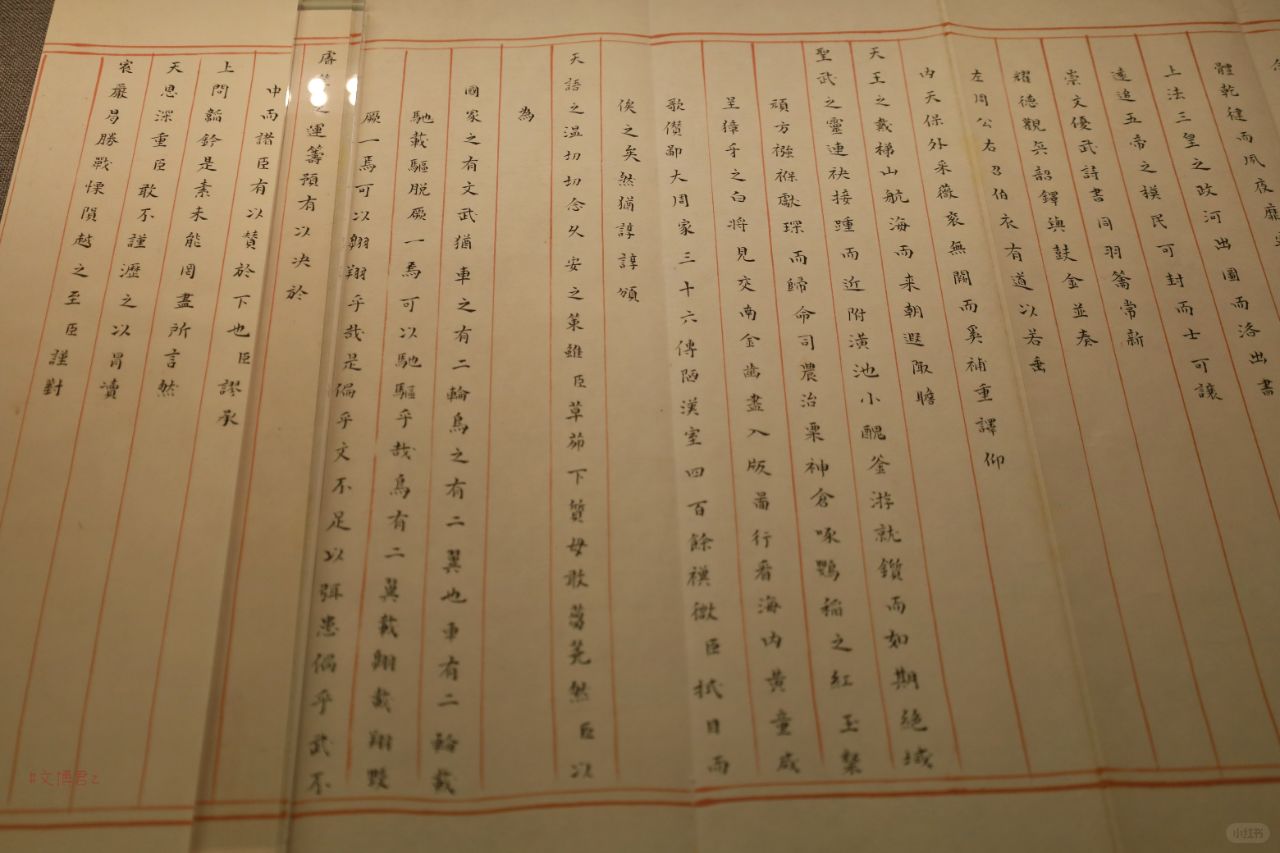 體乾健而夙夜靡寧
上法三皇之政河出圖而洛出書
遠追五帝之模民可封而士可讓
崇文優武詩書同羽籥常新
耀德觀兵韶鐸與鼓金並奏
左周公右召伯衣有道以若垂
內天保外采薇袞無闕而奚補重譯仰
天王之載梯山航海而来朝遐陬瞻
聖武之靈連袂接踵而近附潢池小醜釜游就鑽而如期絕域
頑方襁褓獻琛而歸命司農治粟神倉啄鴉稻之紅玉檠
呈獐乎之白將見交南金齒盡入版圖行看海內黃童咸
歌儹鄙大周家三十六傳陋漢室四百餘禩微臣拭目而
俟之矣然猶諄諄頒
天語之温切切念久安之策雖臣草茆下質毋敢蒭蕘然臣以
為
國家之有文武猶車之有二輪鳥之有二翼也車有二輪載
馳載驅脱厥一焉可以馳驅乎哉鳥有二翼載翱載翔毀
厥一焉可以翱翔乎哉是偏乎文不足以弭患偏乎武不
之運籌預有以决於
中而諸臣有以贊於下也臣謬承
上問韜鈐是素未能罔盡所言然
天恩深重臣敢不謹瀝之以冐瀆
宸嚴曷勝戰慄隕越之至臣謹對
#文博君z
小红书